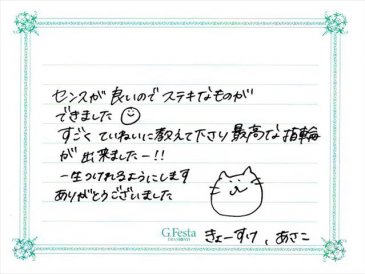 センスが良いのでステキなものが
できました
すごくていねいに教えて下さり最高な指輪
が出来ましたー!!
一生つけれるようにします
ありがとうございました
G.Festa
きょーすけ、あさこ